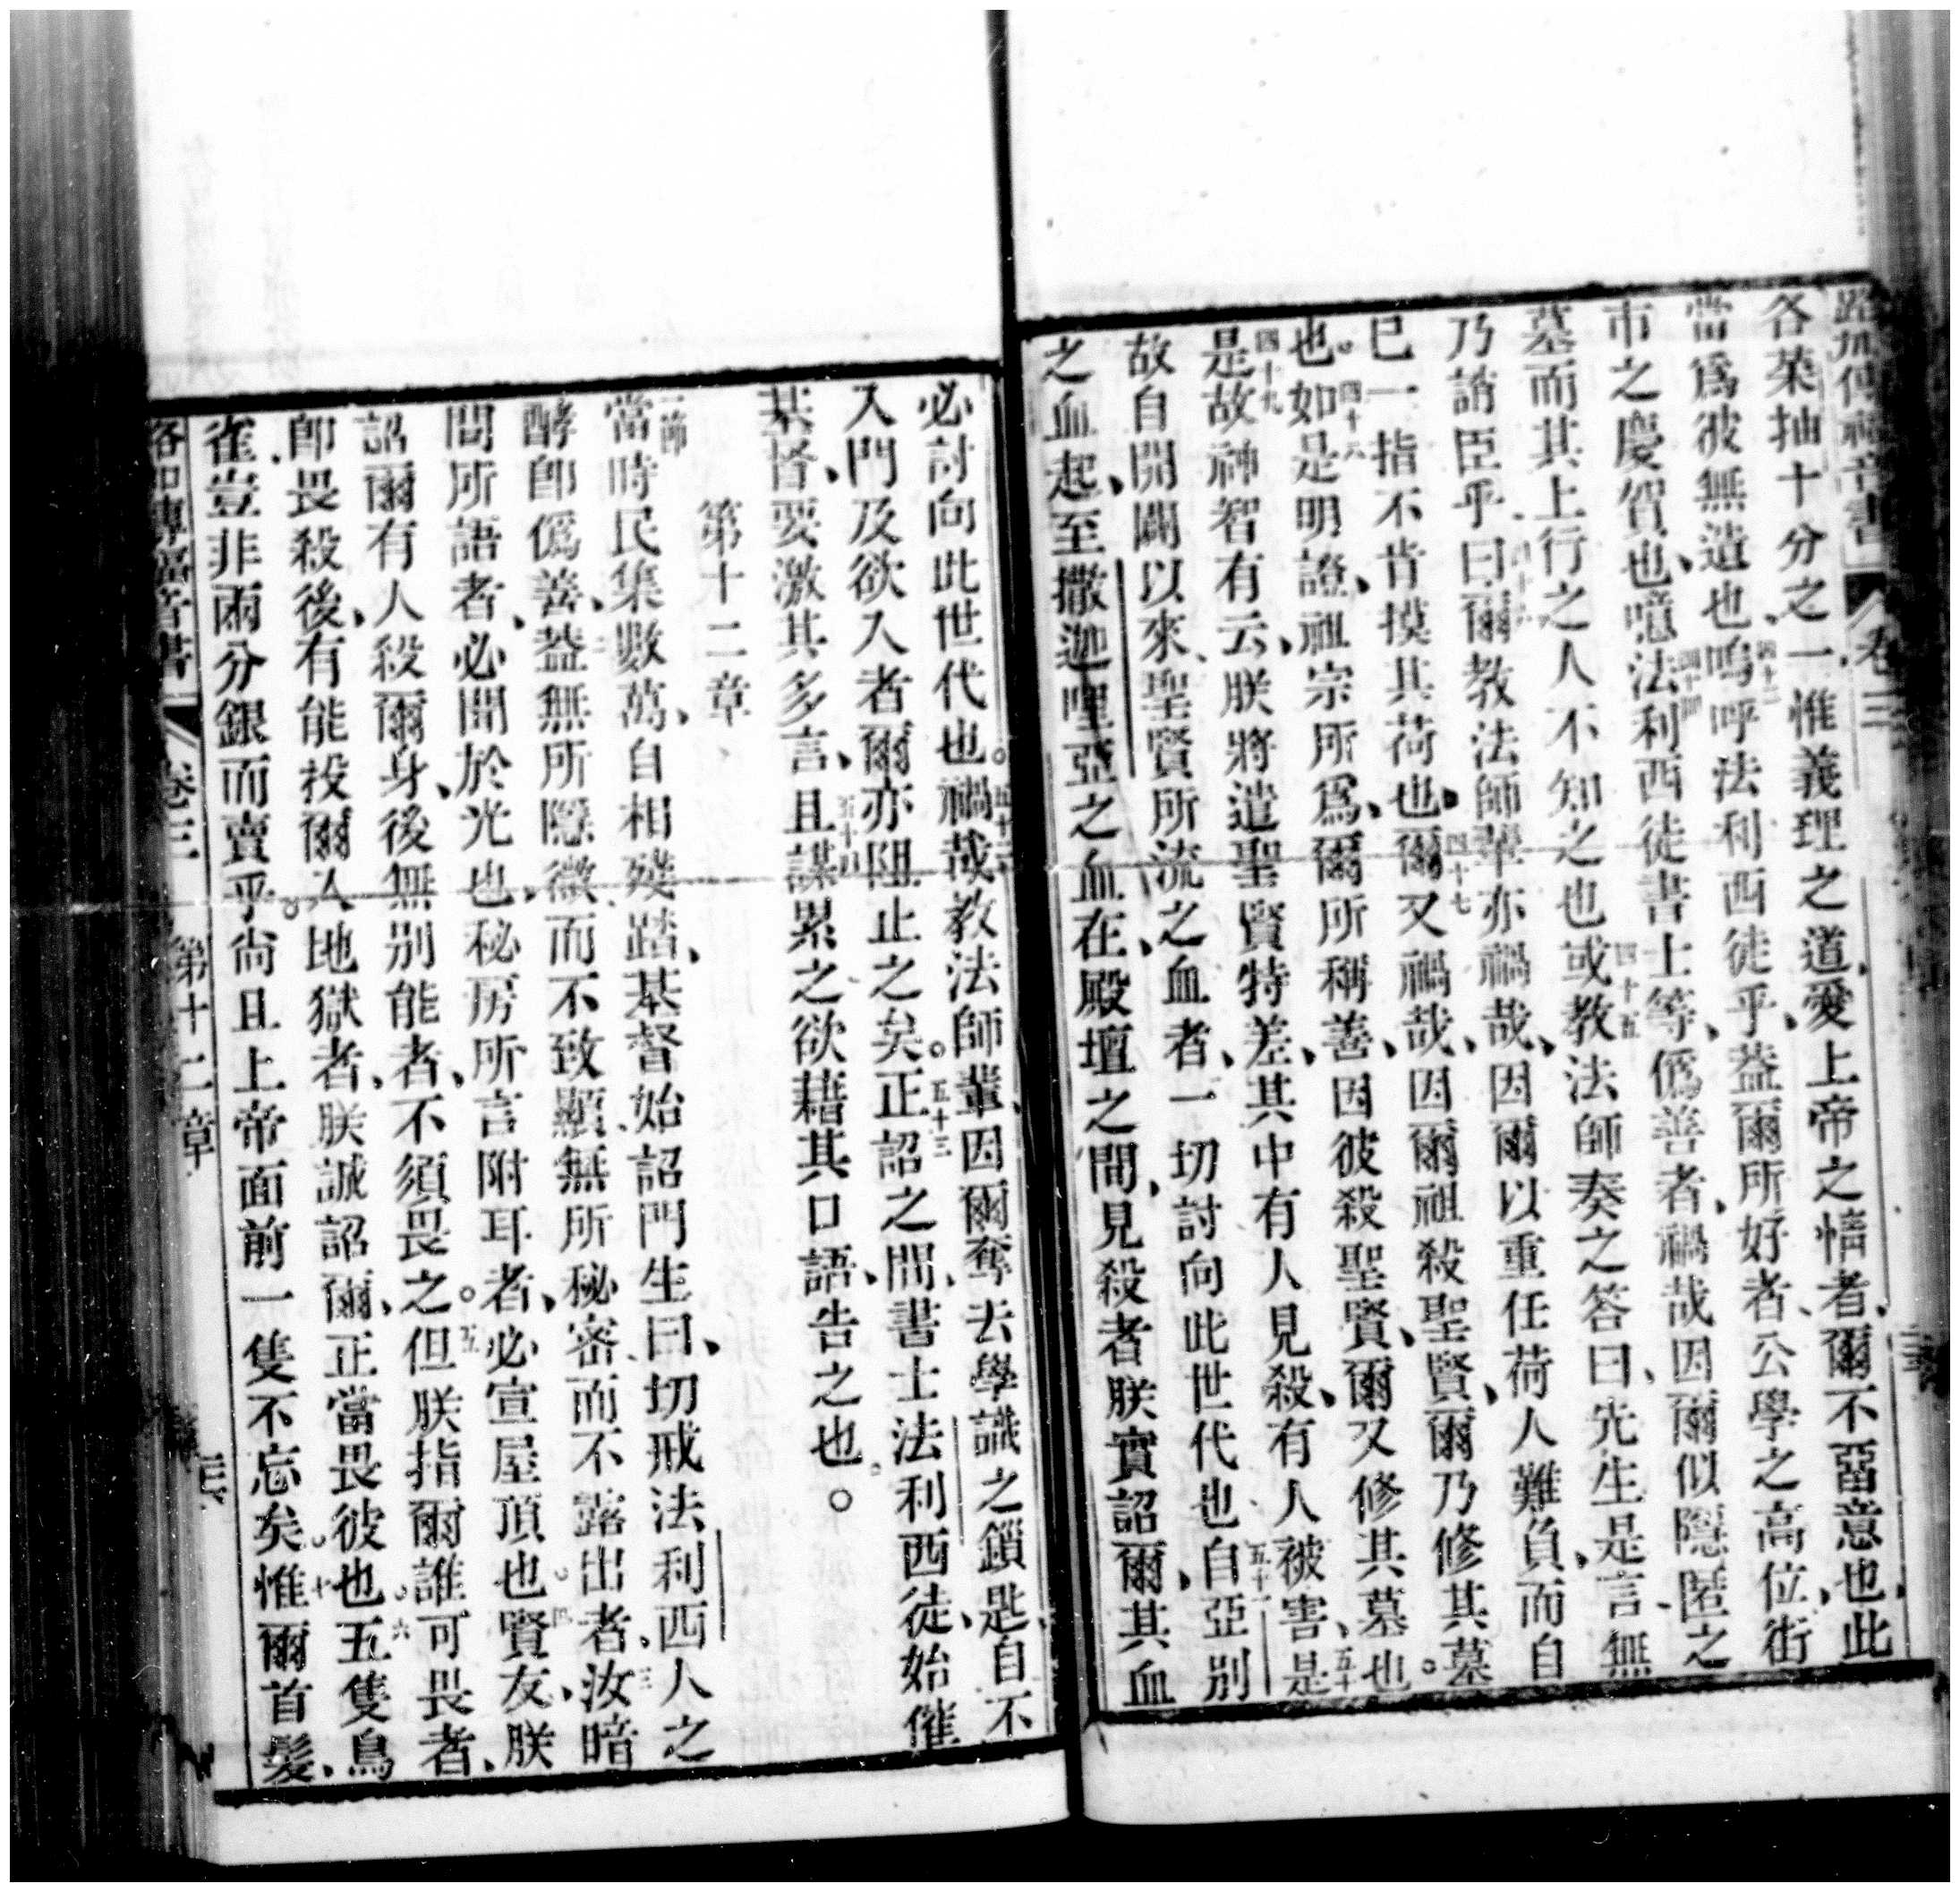 路加傳福音書 卷三
各菜抽十分之、一惟義理之道、愛上帝之情者、爾不畱意也、此
當爲彼無遺也、四十三嗚呼法利西徒乎、葢爾所好者、公學之高位、街
市之慶賀也、噫四十四法利西徒書士等、僞善者、禍哉因爾似隱匿之
墓而其上行之人不知之也四十五或教法師奏之答曰、先生是言、無
乃誚臣乎、曰四十六爾教法師輩亦禍哉、因爾以重任荷人難負、而自
己一指不肯摸其荷也、四十七爾又禍哉、因爾祖殺聖賢、爾乃修其墓
也。四十八如是明證、祖宗所爲、爾所稱善、因彼殺聖賢、爾又修其墓也。
四十九是故神智有云、朕將遣聖賢特差、其中有人見殺、有人被害、五十是
故自開闢以來、聖賢所流之血者、一切討向此世代也五十一自亞別
之血起、至撒迦哩亞之血、在殿壇之間、見殺者朕實詔爾、其血
必討向此世代也。五十二禍哉教法師輩、因爾奪去學識之鎖匙、自不
入門及欲入者爾亦阻止之矣。五十三正詔之間、書士法利西徒、始催
基督、要激其多言、五十四且謀累之欲藉其口語、告之也。○
第十二章
一節當時民集數萬、自相殘踏、基督始詔門生曰、切戒法利西人之
酵卽僞善、二葢無所隱微而不致顯、無所秘密而不露出者、三汝暗
間所語者、必聞於光也、秘房所言附耳者、必宣屋頂也。四賢友、朕
詔爾有人殺爾身、後無別能者、不須畏之。五但朕指爾誰可畏者、
卽畏殺後、有能投爾入地獄者、朕誠詔爾、正當畏彼也。六五隻鳥
雀豈非兩分銀而賣乎。尚且上帝面前一隻不忘矣。七惟爾首髮、
路加傳福音書 卷三 第十二章